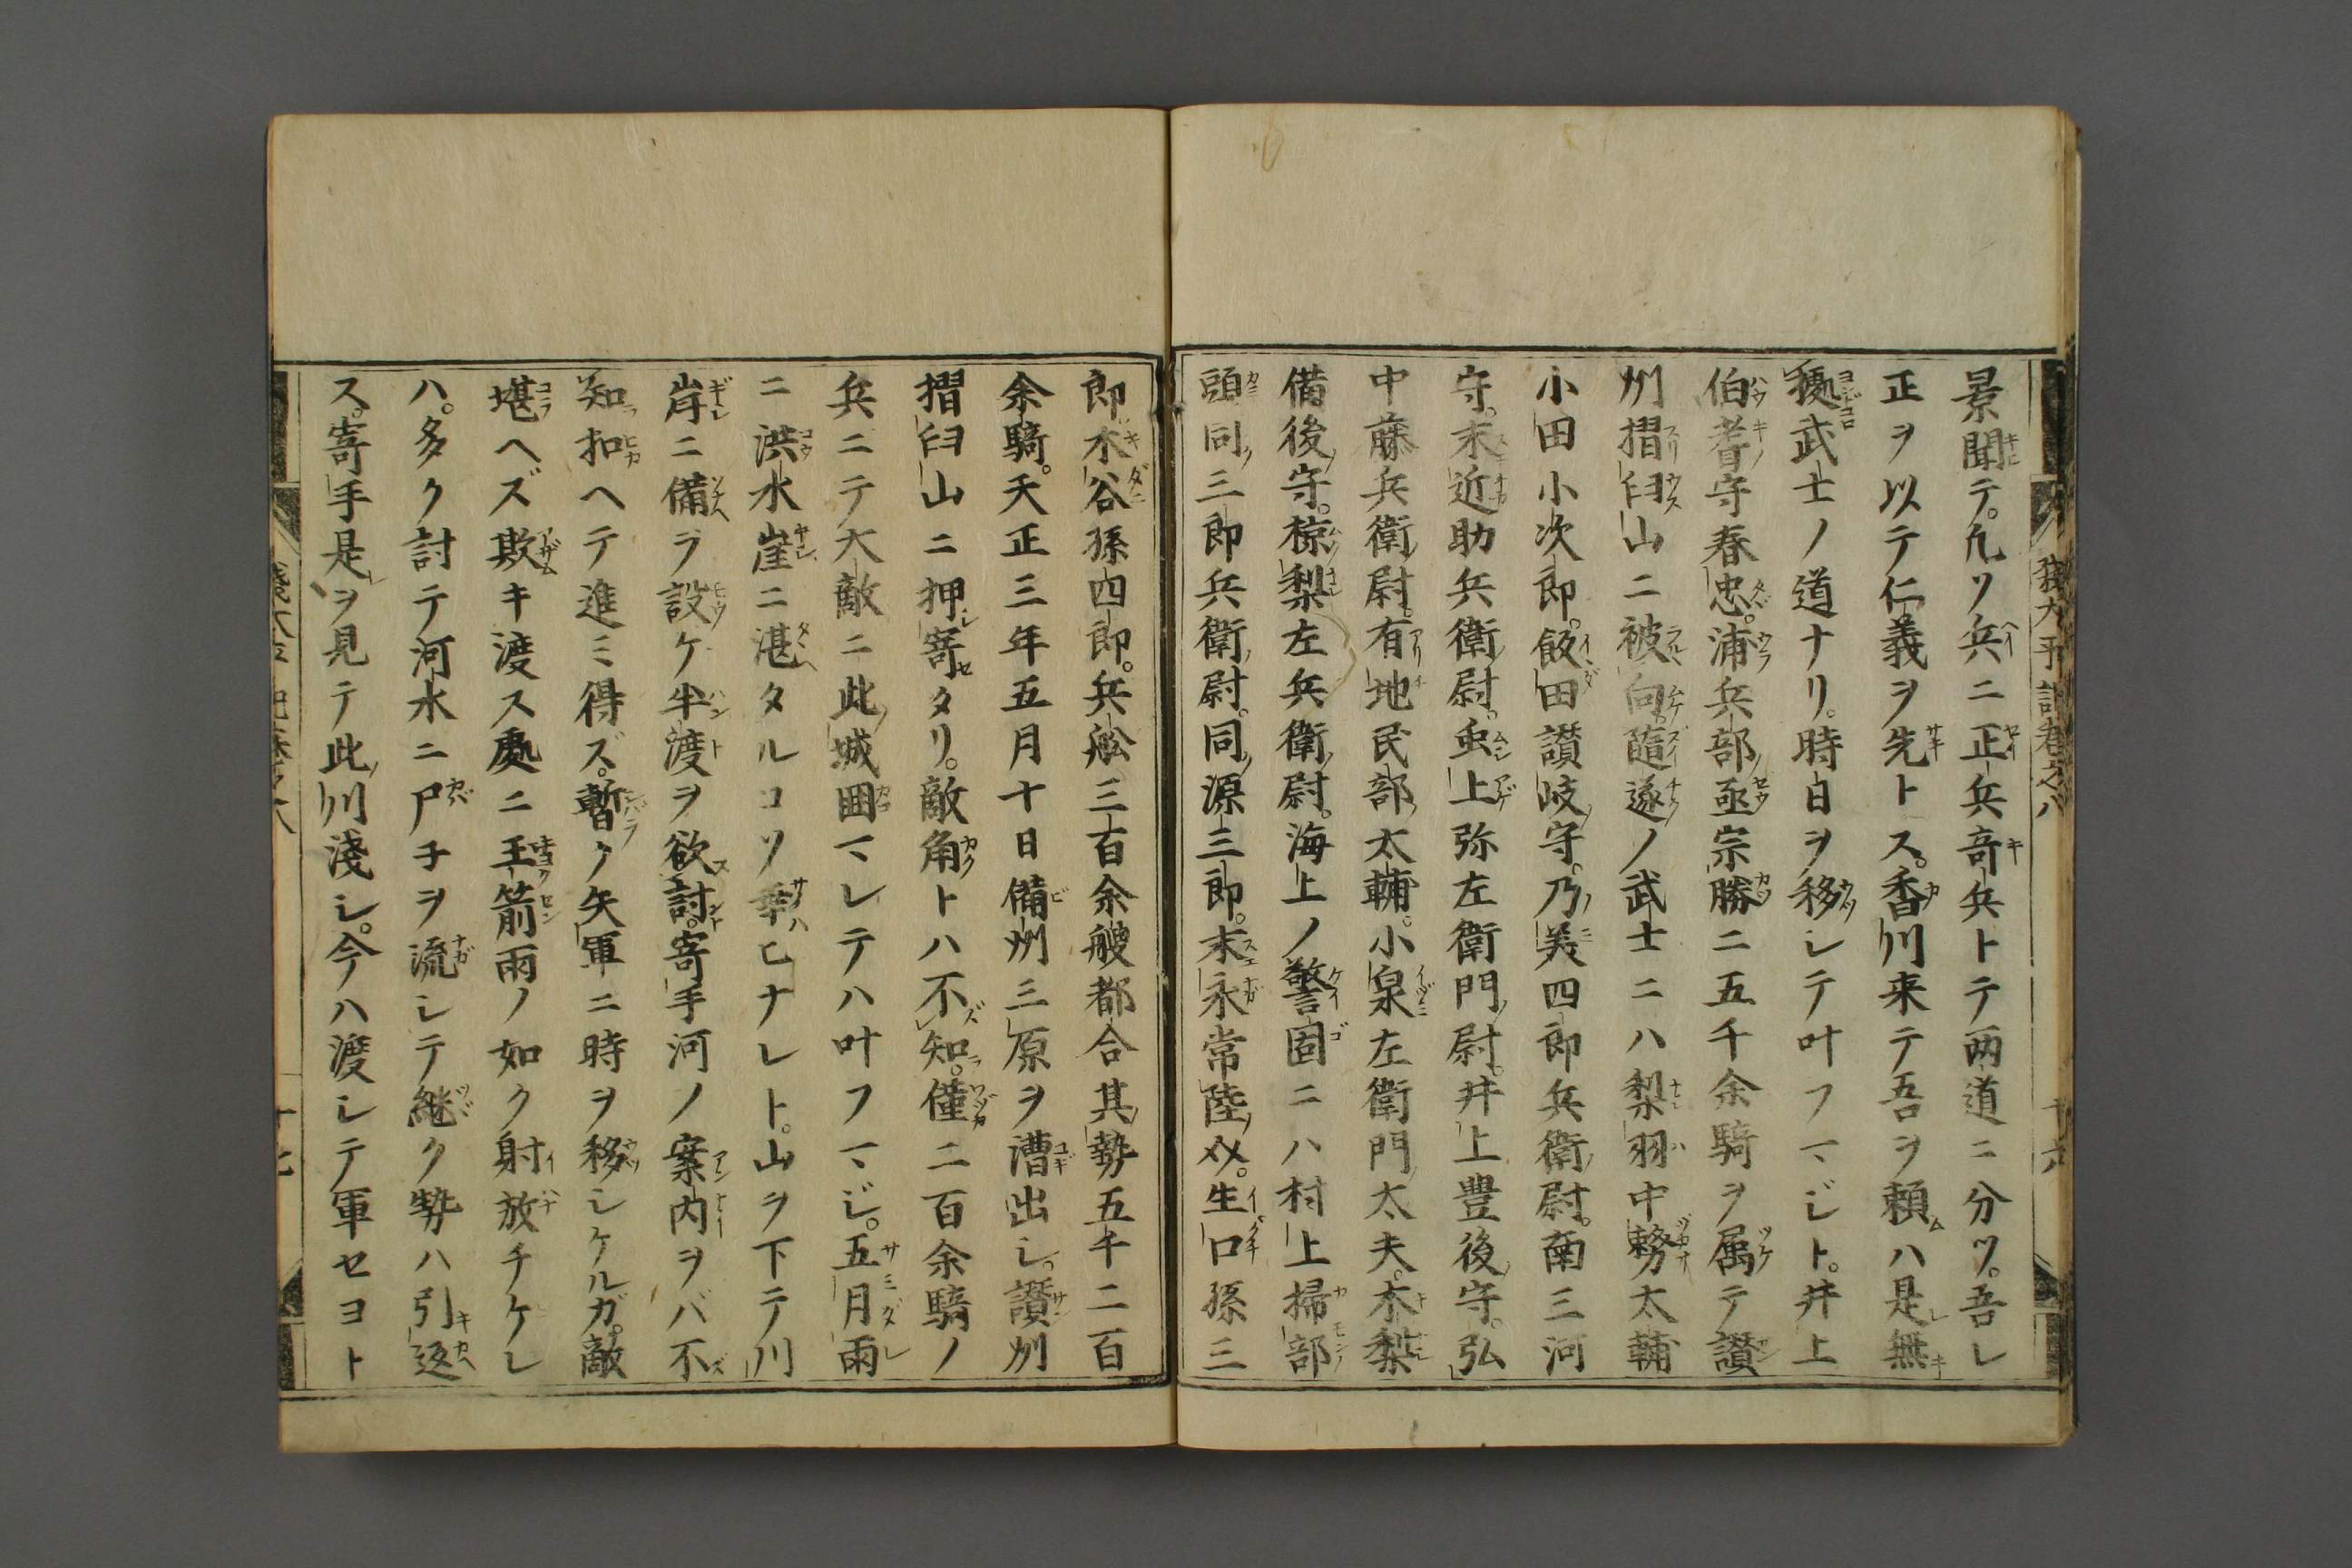 景聞テ。凢ソ兵ニ正兵竒兵トテ両道ニ分ツ。吾レ
正ヲ以テ仁義ヲ先トス。香川来テ吾ヲ頼ハ是無
擾武士ノ道ナリ。時日ヲ移シテ叶フマジト。井上
伯耆守春忠。浦兵部丞宗勝ニ五千余騎ヲ属テ讃
州摺臼山ニ被向。随逐ノ武士ニハ梨羽中務太輔
小田小次郎。飯田讃岐守。乃美四郎兵衛尉。南三河
守。末近助兵衛尉。虫上弥左衛門尉。井上豊後守。弘
中藤兵衛尉。有地民部太輔。小泉左衛門太夫。木梨
備後守。椋梨左兵衛尉。海上ノ警固ニハ村上掃部
頭同三郎兵衛尉。同源三郎。末永常陸介。生口孫三
郎木谷孫四郎。兵舩三百余艘都合其勢五千二百
余騎。天正三年五月十日備州三原ヲ漕出シ。讃州
摺臼山ニ押寄タリ。敵角トハ不知。僅二百余騎ノ
兵ニテ大敵ニ此城囲マレテハ叶フマジ。五月雨
ニ洪水崖ニ湛タルコソ幸ヒナレト。山ヲ下テ川
岸ニ備ヲ設ケ半渡ヲ欲討。寄手河ノ案内ヲバ不
知扣ヘテ進ミ得ズ。暫ク矢軍ニ時ヲ移シケルガ。敵
堪ヘズ欺キ渡ス処ニ王箭雨ノ如ク射放チケレ
ハ。多ク討テ河水ニ尸子ヲ流シテ継ク勢ハ引返
ス。寄手是ヲ見テ此川淺シ。今ハ渡シテ軍セヨト
残太平記巻之八
十六
十七